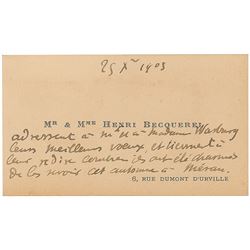 25 Xbre 1903
MR & MME HENRI BECQUEREL
adressent à Mr et à Madame Warburg
leurs meilleurs vœux, et tiennent à
leur redire combien ils ont été charmés
de les revoir cet automne à Méran.
6, RUE DUMONT D'URVILLE